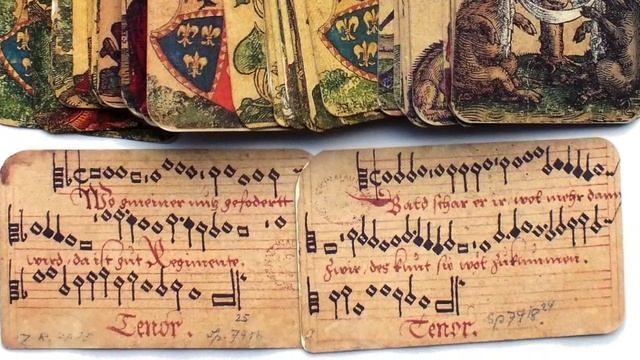 Wo gmeiner nutz gefodertt
wird, da ist gut Regimente.
Tenor.
25
Sp. 7918
Bald schar er ir, wol mehr dann
zwir, des kunt sie wol zukummen.
Tenor.
Sp 7918 24